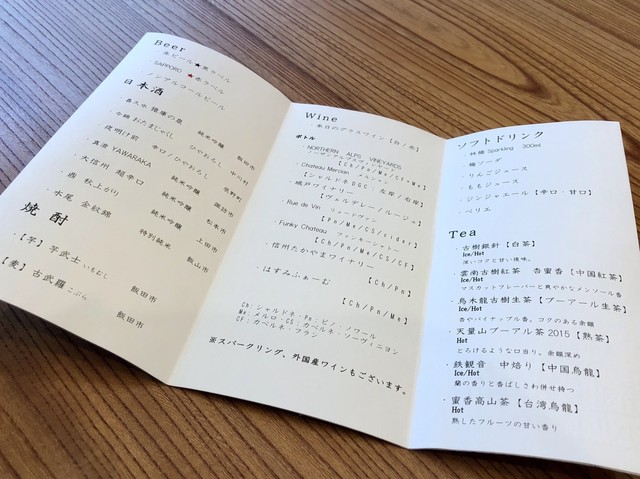 Beer
生ビール★黒ラベル
SAPPORO ★赤ラベル
ノンアルコールビール
日本酒
喜久水 猿庫の泉 純米吟醸 飯田市
今錦 おたまじゃくし ひやおろし 中川村
夜明け前 辛口/ひやおろし 辰野町
真澄 YAWARAKA 純米吟醸 諏訪市
大信州 超辛口 純米吟醸 松本市
亀齢 秋上がり 純米吟醸 上田市
水尾 金紋錦 特別純米 飯山市
焼酎
【芋】芋武士 いもむし 飯田市
【麦】古武羅 こぶら 飯田市
Wine
本日のグラスワイン【白/赤】
ボトル
・NORTHERN ALPS VINEYARDS
【Ch/Pn/Me/CF+Me】
・Chateau Mercian メルシャン
【シャルドネDGC:左岸/右岸】
・城戸ワイナリー
【ヴェルデレー/ルージュ】
・Rue de Vin リュードヴァン
【Pn/Me/CS/cider】
・Funky Chateau ファンキーシャトー
【Ch/Pn/Me/CS/CF】
・信州たかやまワイナリー
【Ch/Pn】
・はすみふぁーむ
【Ch/Pn/Me】
Ch:シャルドネ・Pn:ピノ・ノワール
Me:メルロ・CS:カベルネ・ソーヴィニヨン
CF:カベルネ・フラン
※スパークリング、外国産ワインもございます。
ソフトドリンク
・林檎 Sparkling 300ml
・梅ソーダ
・りんごジュース
・ももジュース
・ジンジャエール【辛口・甘口】
・ペリエ
Tea
・古樹銀針【白茶】
Ice/Hot
深いコクと甘い後味。
・雲南古樹紅茶 杏蜜香【中国紅茶】
Ice/Hot
マスカットフレーバーと爽やかなメンソール香
・烏木龍古樹生茶【プーアール生茶】
Ice/Hot
杏やパイナップル香。コクのある余韻
・天量山プーアル茶 2015【熟茶】
Hot
とろけるような口当り。余韻深め
・鉄観音 中焙り【中国烏龍】
Ice/Hot
蘭の香りと香ばしさわ併せ持つ
・蜜香高山茶【台湾烏龍】
Hot
熟したフルーツの甘い香り